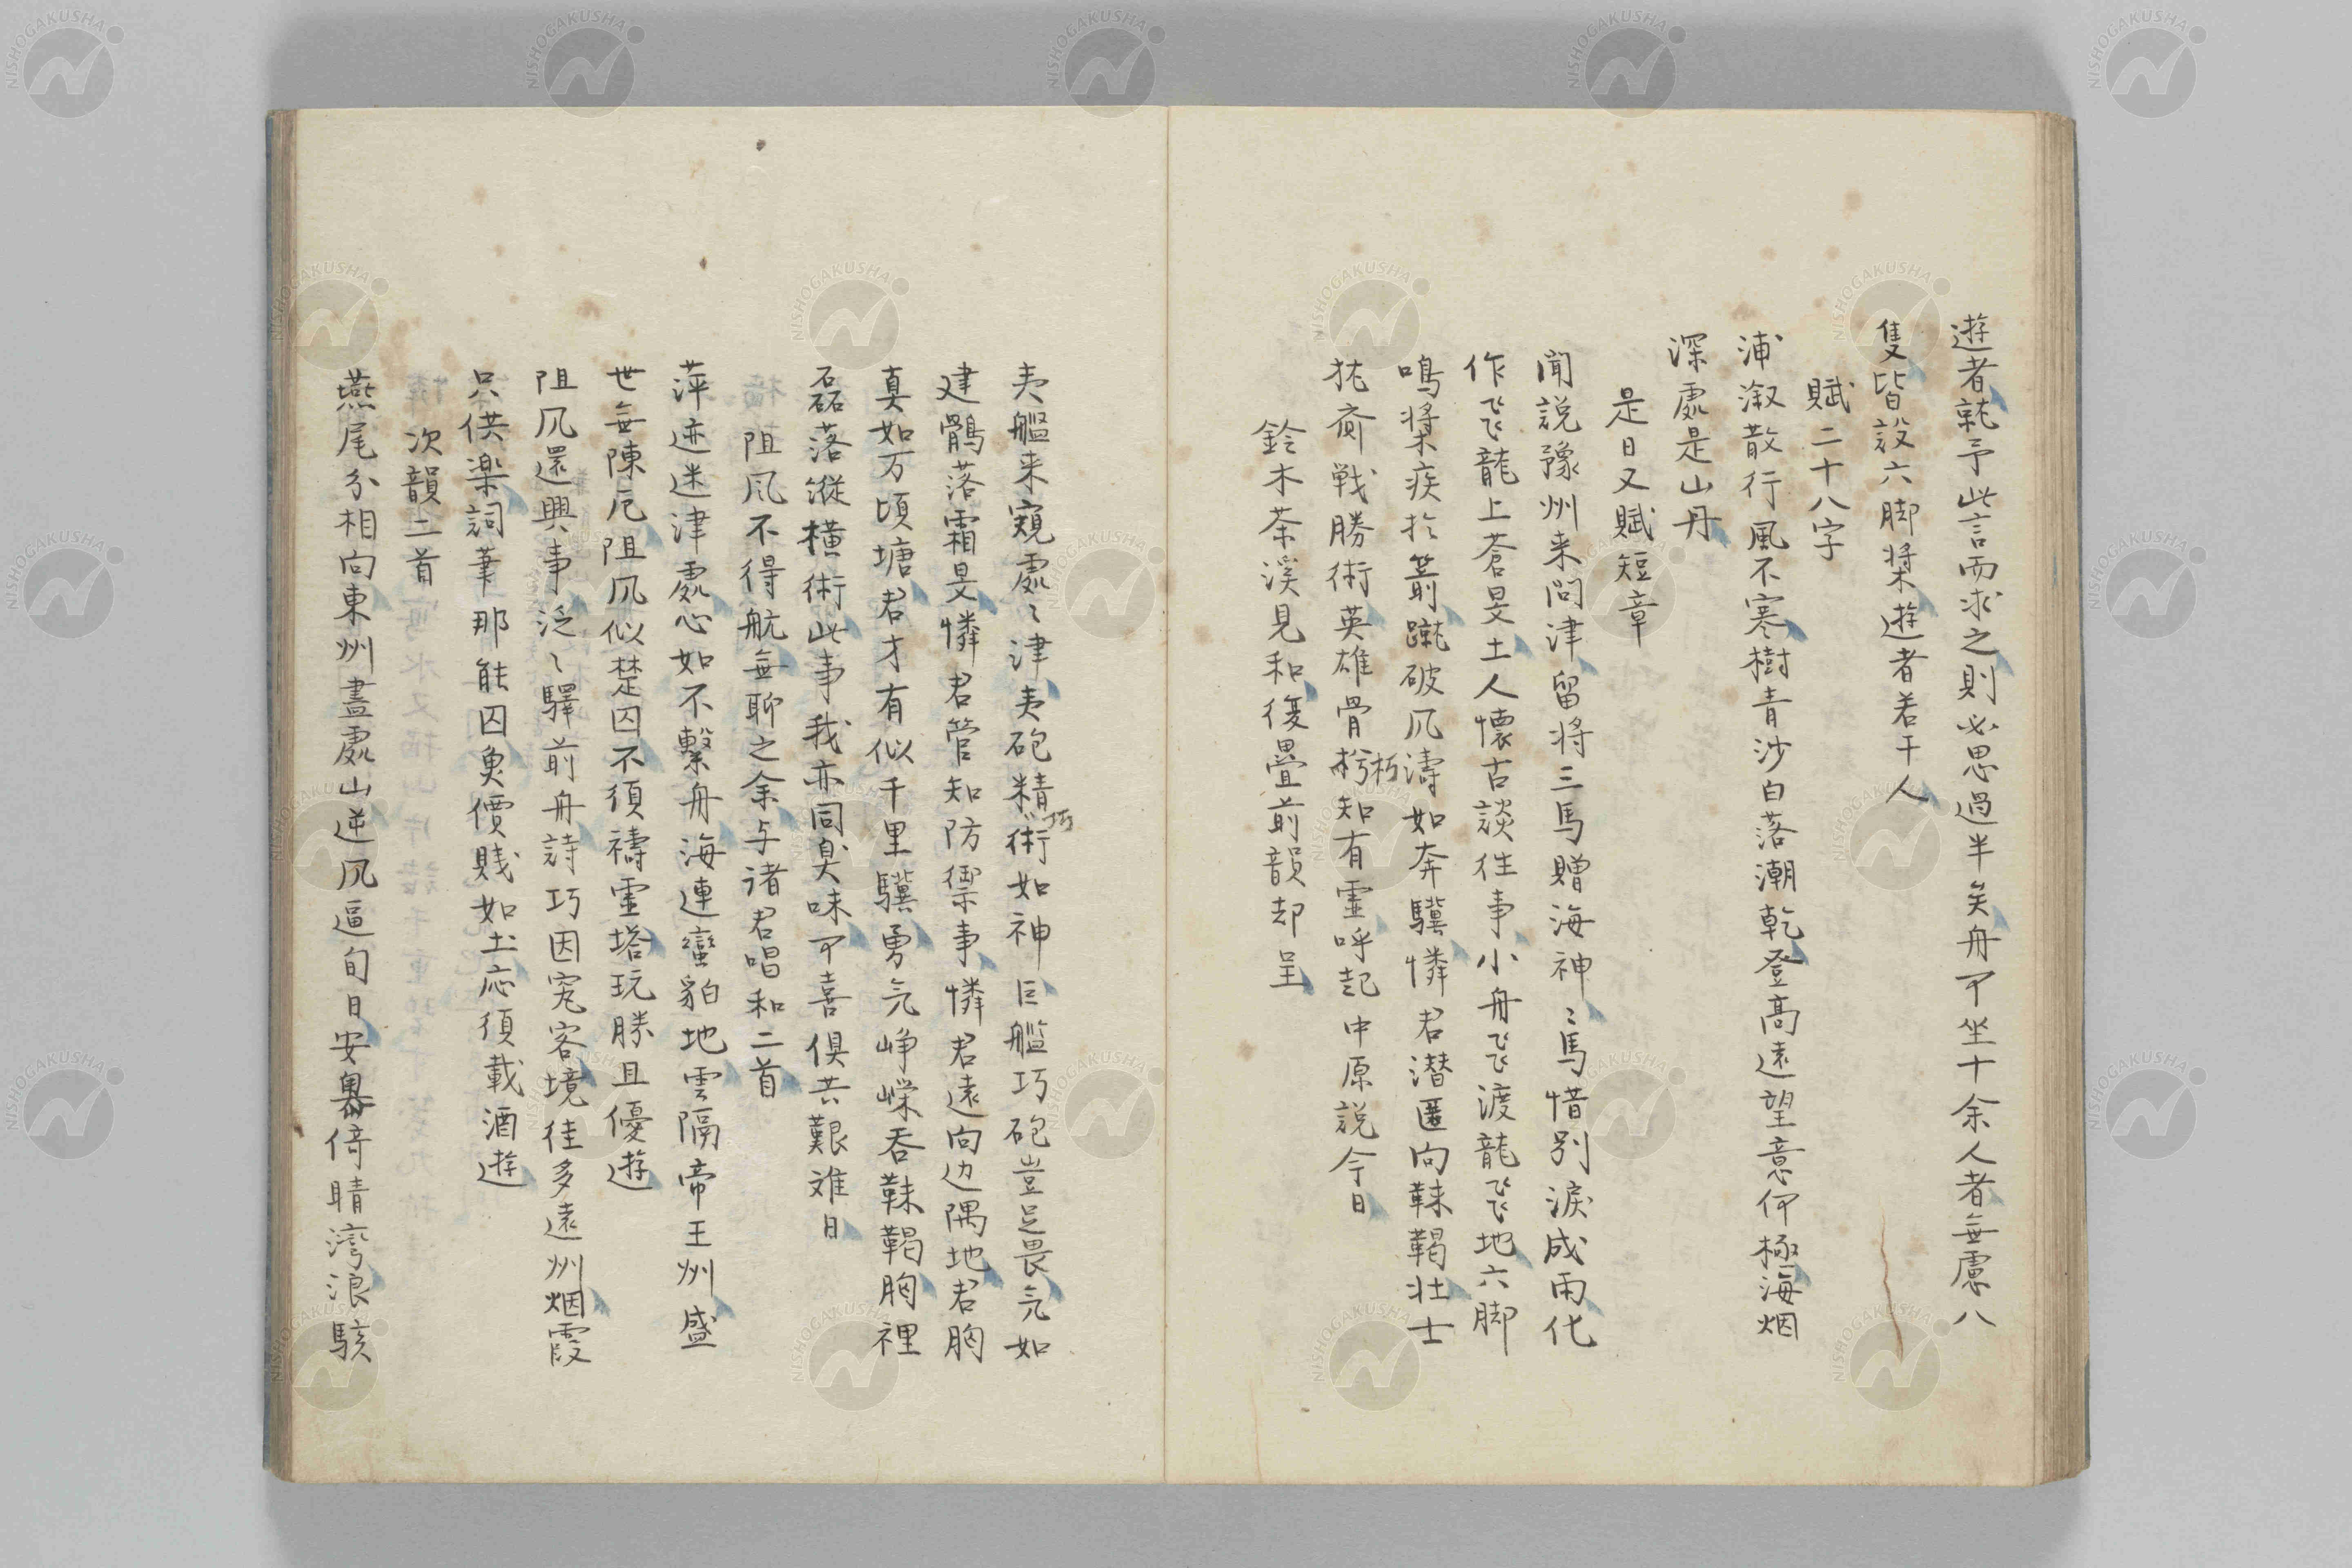 遊者就予此言而求之則必思過半矣舟可坐十余人者無慮八
隻皆設六脚槳遊者若干人
賦二十八字
浦溆散行風不寒樹青沙白落潮乾登高遠望意何極海烟
深處是山丹
是日又賦短章
聞說豫州来問津留将三馬贈海神〻馬惜別淚成雨化
作飞龍上蒼旻土人懷古談往事小舟飞渡龍飞地六脚
鳴槳疾於箭蹴破凨濤如奔驥憐君潜匿向靺鞨壮士
戦勝術英雄骨朽知有霊呼起中原説今日
鈴木茶溪見和復疊前韻却呈
夷艦来窺處〻津夷砲精巧術如神巨艦巧砲豈足畏気如
建鶻落霜旻憐君管知防禦事憐君遠向边隅地君胸
真如万頃塘君才有似千里驥勇気崢嶸吞靺鞨胸裡
磊落縦横術此事我亦同臭味可喜俱共艱难日
阻凨不得航無聊之余与诸君唱和二首
萍迹迷津處心如不繫舟海連蠻貊地雲隔帝王州盛
世無陳厄阻凨似楚囚不須禱霊塔玩勝且優遊
阻凨還興事泛〻驛前舟詩巧因窮客境佳多遠州烟霞
只供楽詞筆那能囚魚價賎如土応須載酒遊
次韻二首
燕尾分相向東州盡處山逆凨逼旬日安倚晴湾浪駭